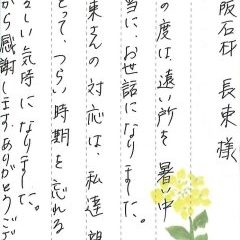 阪石材 長束様
の度は、遠い所を暑い中
当に、お世話になりました。
東さんの対応は、私達親
とって、つらい時期を忘れる
らしい気時になりました。
から感謝します。ありがとうござ